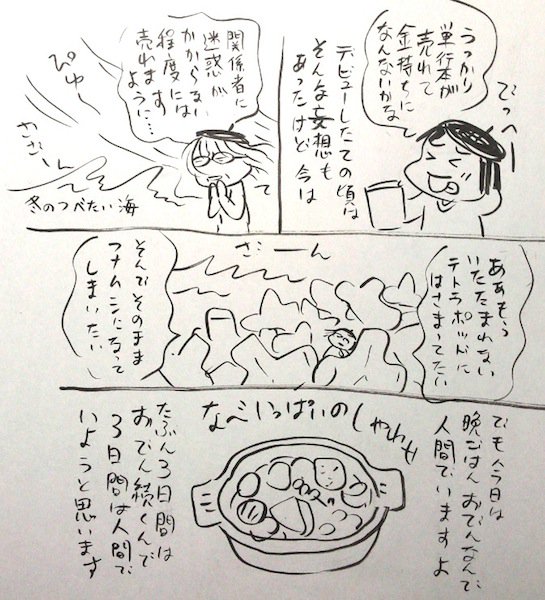 うっかり
単行本が
売れて
金持ちに
なんないかな
でっへー
デビューしたての頃は
そんな妄想も
あったけど 今は
関係者に
迷惑が
かからない
程度には
売れます
ように…
ぴゅー
ざざーん
冬のつべたい海
ああもう
いたたまれない
テトラポッドに
はさまってたい
ざーん
そんでそのまま
フナムシになって
しまいたい
でも今日は
晩ごはんおでんなんで
人間でいますよ
なべいっぱいのしやわせ
たぶん3日間は
おでん続くんで
3日間は人間で
いようと思います